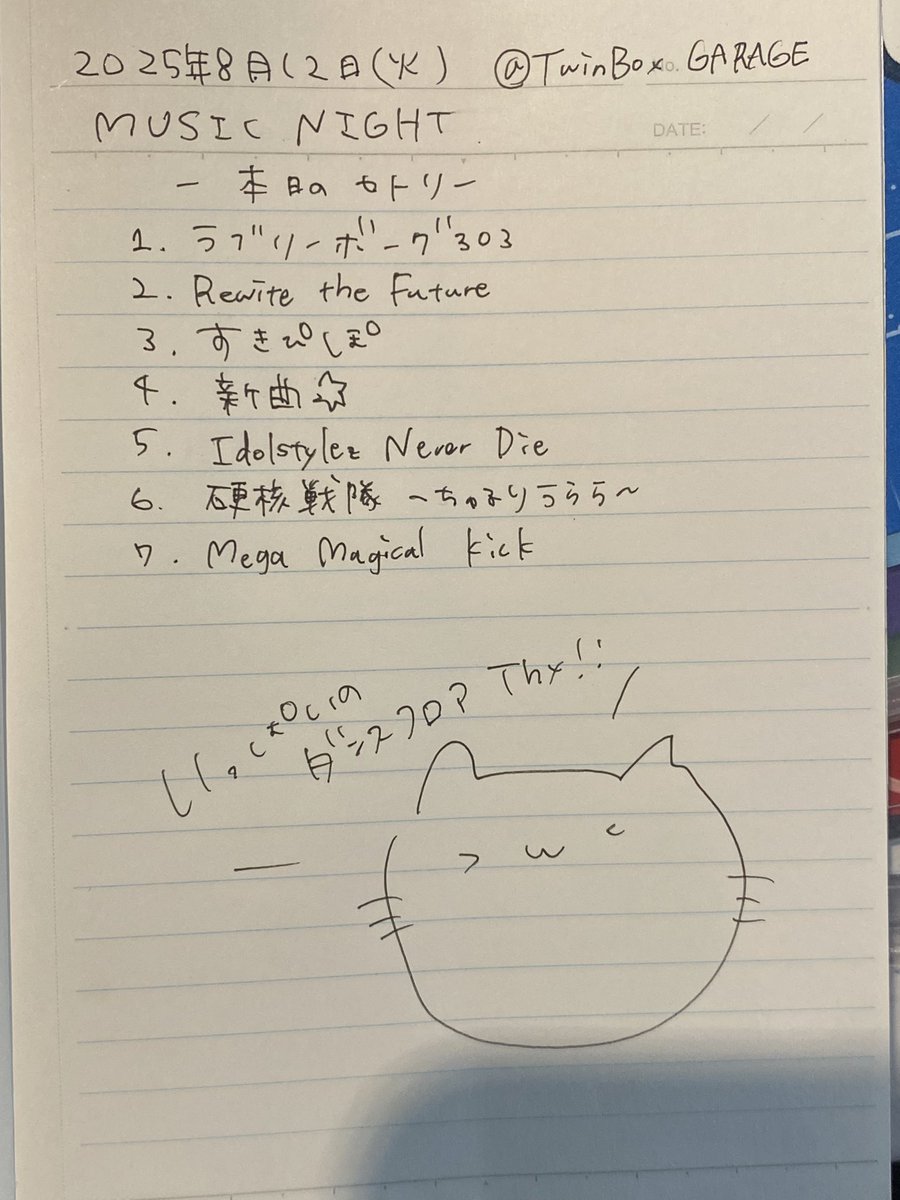 2025年8月12日(火) @TwinBox GARAGE
No.
MUSIC NIGHT
DATE: / /
- 本日のセトリ -
1. ラブリーボーグ303
2. Rewite the Future
3. すきぴじぽ
4. 新曲☆
5. Idolstylez Never Die
6. 硬核戦隊 〜ちゅるりうらら〜
7. Mega Magical Kick
ダンスフロア Thx!!
> w <